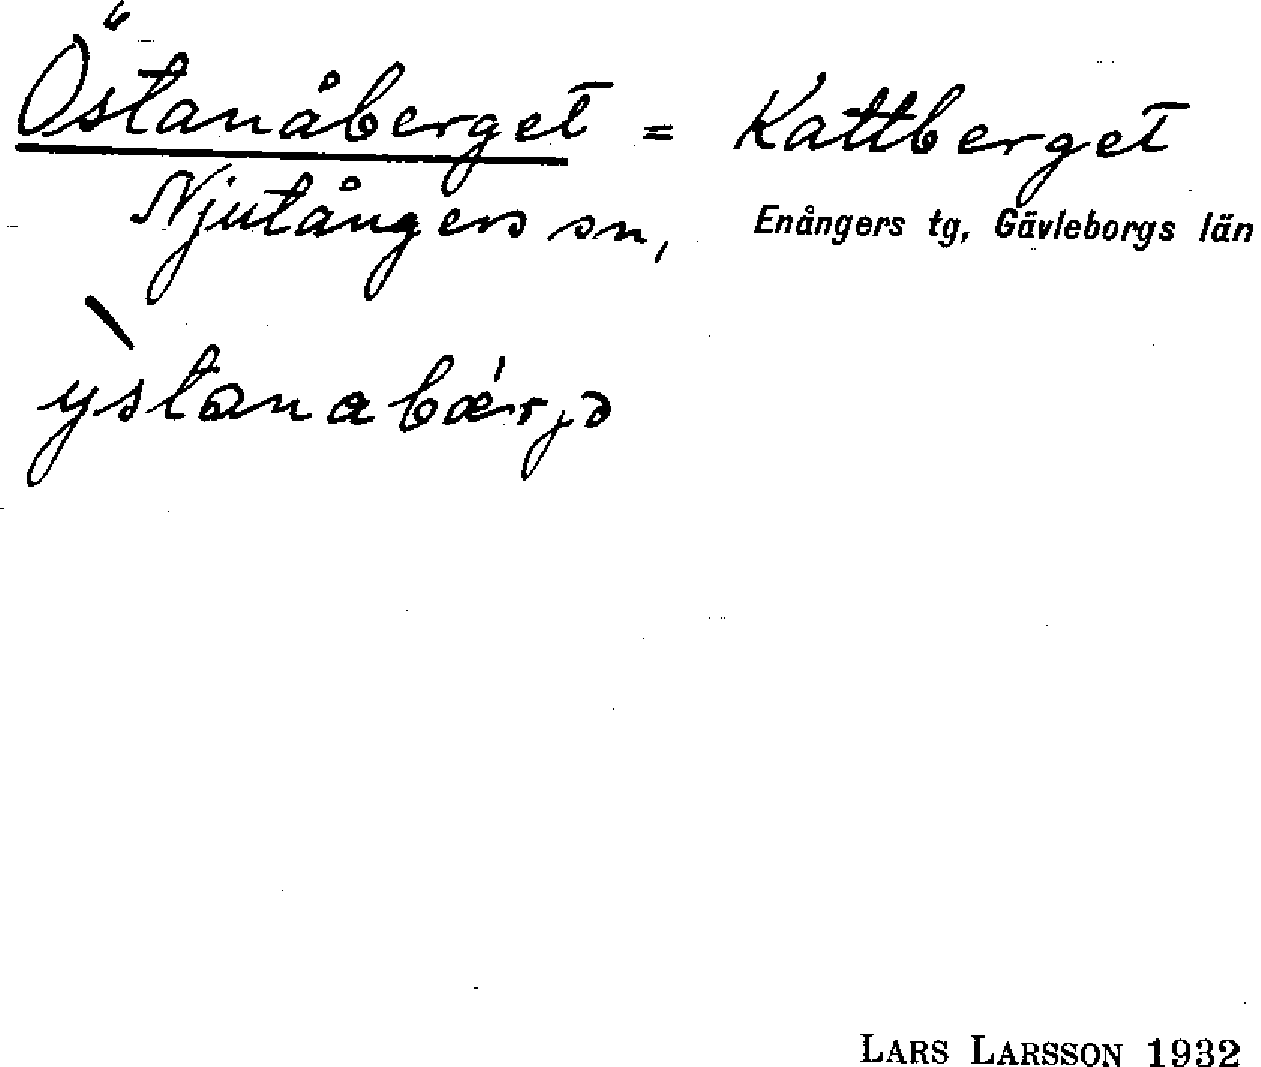 Östanåberget = Kattberget
Njutångers sn, Enångers tg, Gävleborgs län
ỳstanabǽrjə
LARS LARSSON 1932